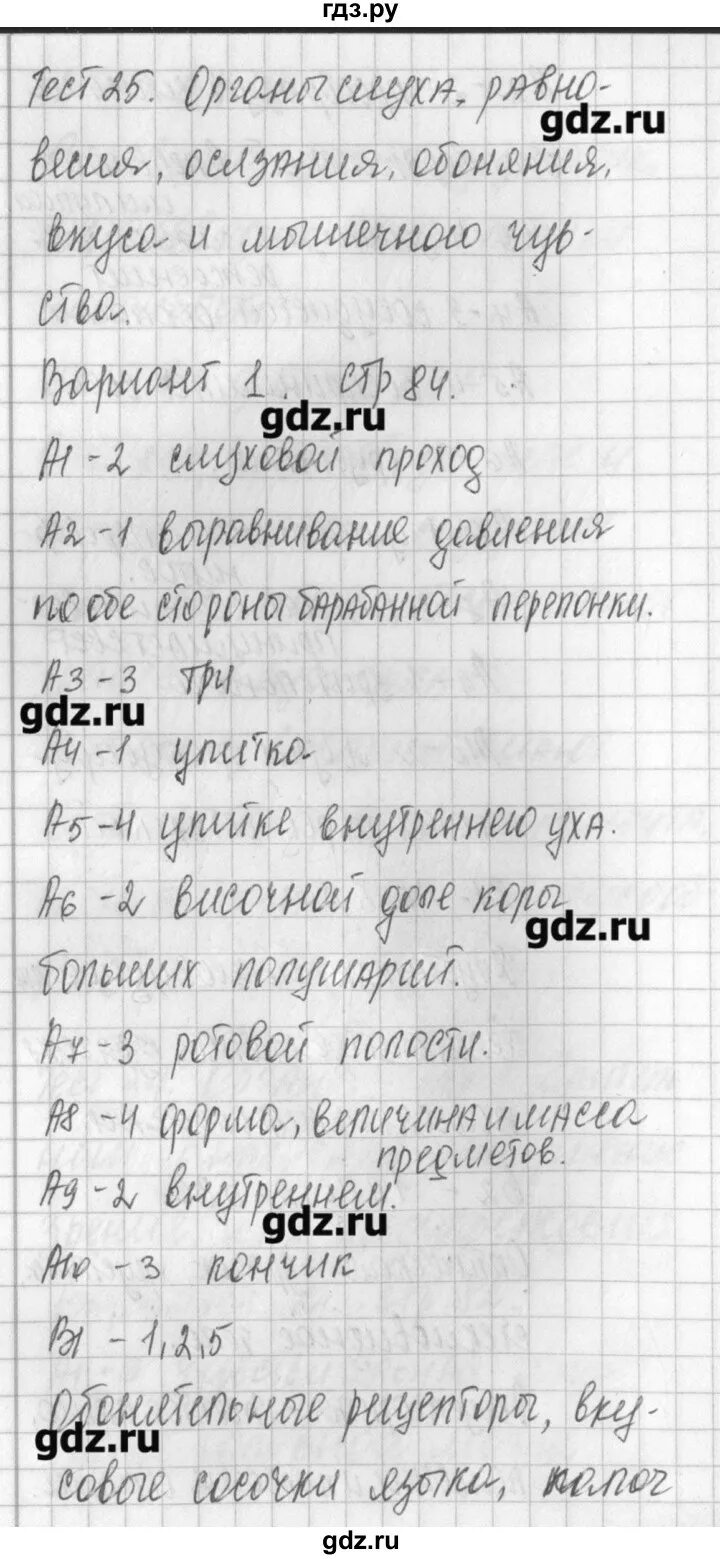 гдз.ру
Тест 25. Органы слуха, равно-
gdz.ru
весия, осязания, обоняния,
вкуса и мышечного чув-
ства.
Вариант 1. стр 84.
gdz.ru
А1 - 2 слуховой проход
А2 - 1 выравнивание давления
по обе стороны барабанной перепонки.
А3 - 3 три
gdz.ru
А4 - 1 улитка
А5 - 4 улитке внутреннего уха.
А6 - 2 височной доле коры
gdz.ru
больших полушарий.
А7 - 3 ротовой полости.
А8 - 4 форма, величина и масса
предметов.
А9 - 2 внутреннем.
gdz.ru
А10 - 3 кончик
В1 - 1,2,5
Обонятельные рецепторы, вку-
gdz.ru
совые сосочки языка,
gdz.ru